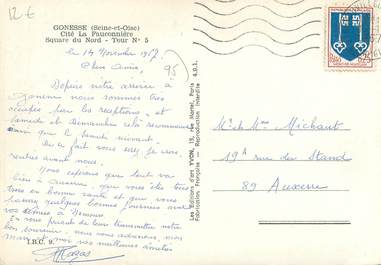 12€
GONESSE (Seine-et-Oise)
Cité La Fauconnière
Square du Nord - Tour N° 5
le 14 Novembre 1967
Chers Amis,
95
Depuis notre arrivée à
Gonesse nous sommes très
occupés par les réceptions, et
samedi et dimanche cela recommence
ainsi que le suivant.
vous
rentrés avant nous.
Nous espérons que tout va
bien à Auxerre, que vous êtes tous
en bonne santé et que vous
quelques bonnes journées avec
vos
En vous priant de leur transmettre notre
bon souvenir, nous vous adressons mon
mari et moi nos meilleures amitiés
I.B.C. 9.
Les Editions d'art YVON, 15, rue Martel, Paris 4.0.1.
Fabrication Française - Reproduction interdite
Mr et Mme Michaut
19A rue du Stand
89 Auxerre
0,25